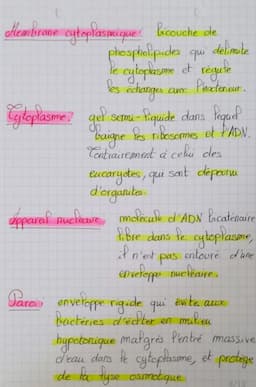 Membrane cytoplasmique: Bicouche de
phospholipides qui délimite
le cytoplasme et régule
les échanges avec l'extérieur.
Cytoplasme: gel semi-liquide dans lequel
baigne les ribosomes et l'ADN.
Contrairement à celui des
eucaryotes, qui sont dépourvu
d'organites.
Appareil nucléaire molécule d'ADN bicatenaire
libre dans le cytoplasme,
il n'est pas entouré d'une
enveloppe nucléaire.
Paroi: enveloppe rigide qui évite aux
bactéries d'éclater en milieu
hypotonique malgrès l'entré massive
d'eau dans le cytoplasme, et protège
de la lyse osmotique